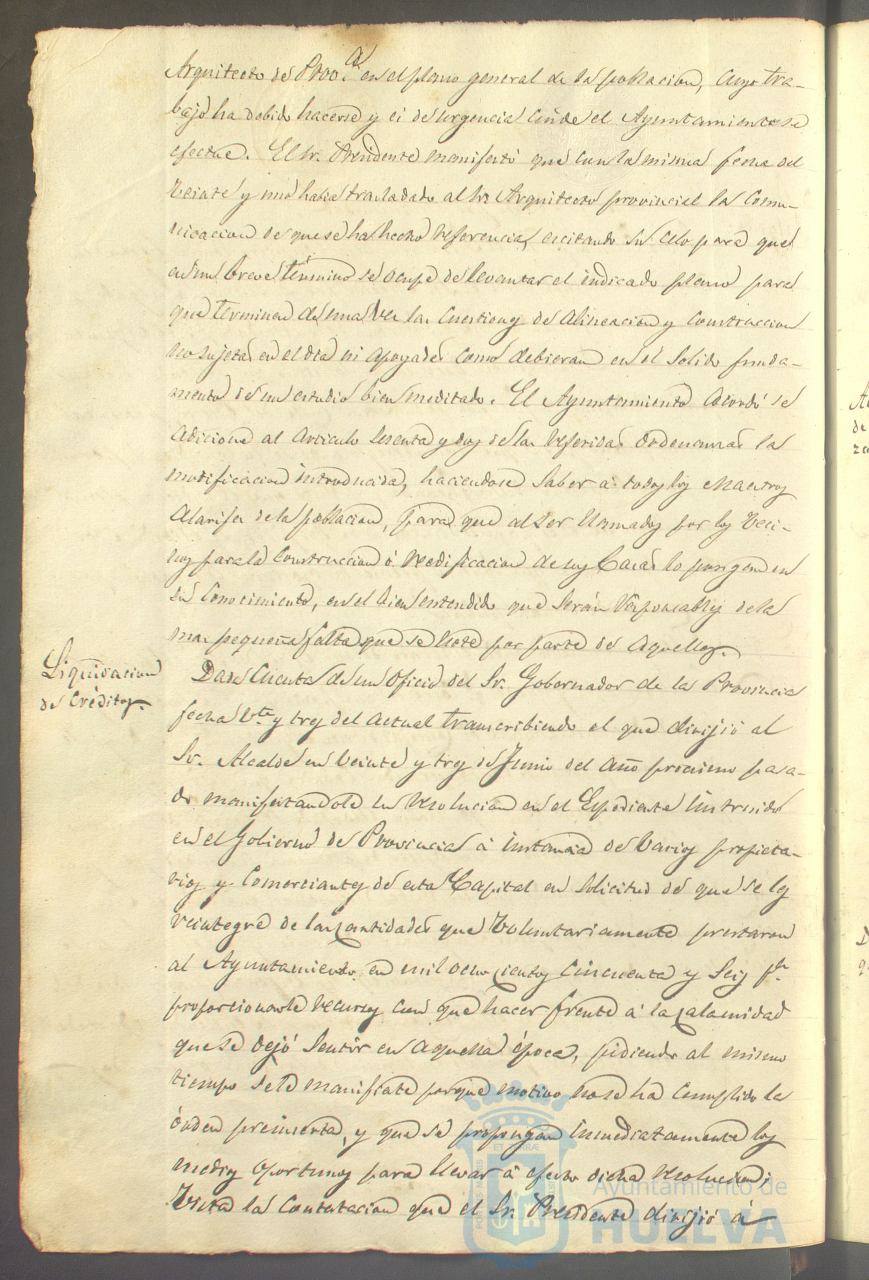 Arquitecto de Prov.ª en el plano general de la poblacion, cuyo tra-
bajo ha debido hacerse y es de urgencia el Ayuntamiento se
efectue. El Sr. Presidente manifestó que con la misma fecha del
veinte y uno habia trasladado al Sr. Arquitecto provincial la comu-
nicacion de que se ha hecho referencia, escitando su celo para que
en un breve término se ocupe de levantar el indicado plano para
que terminen de una vez las cuestiones de alineacion y construccion
no sujetas en el dia ni apoyadas como debieran en el solido funda-
mento de un estudio bien meditado. El Ayuntamiento acordó se
adicione al articulo sesenta y dos de las referidas Ordenanzas la
modificacion introducida, haciendose saber a todos los Maestros
Alarifes de la poblacion, para que al ser llamados por los veci-
nos para la construccion ó reedificacion de sus Casas lo pongan en
su conocimiento, en el bien entendido que serán responsables de la
mas pequeña falta que se note por parte de aquellos.
Liquidacion
de Créditos.
Dada cuenta de un oficio del Sr. Gobernador de la Provincia
fecha y tres del actual transcribiendo el que dirijió al
Sr. Alcalde en veinte y tres de Junio del año procsimo pasa-
do manifestandole su resolucion en el Espediente instruido
en el Gobierno de Provincia á instancia de varios propieta-
rios y comerciantes de esta Capital en solicitud de que se les
reintegre de las cantidades que voluntariamente prestaron
al Ayuntamiento en mil ochocientos cincuenta y seis pª
proporcionarle recursos con que hacer frente á la calamidad
que se dejó sentir en aquella época, pidiendo al mismo
tiempo se le manifieste porque motivo no se ha cumplido la
órden preinserta, y que se propongan inmediatamente los
medios oportunos para llevar á efecto dicha resolucion;
Vista la contestacion que el Sr. Presidente dirijió á
Ayuntamiento de
HUELVA